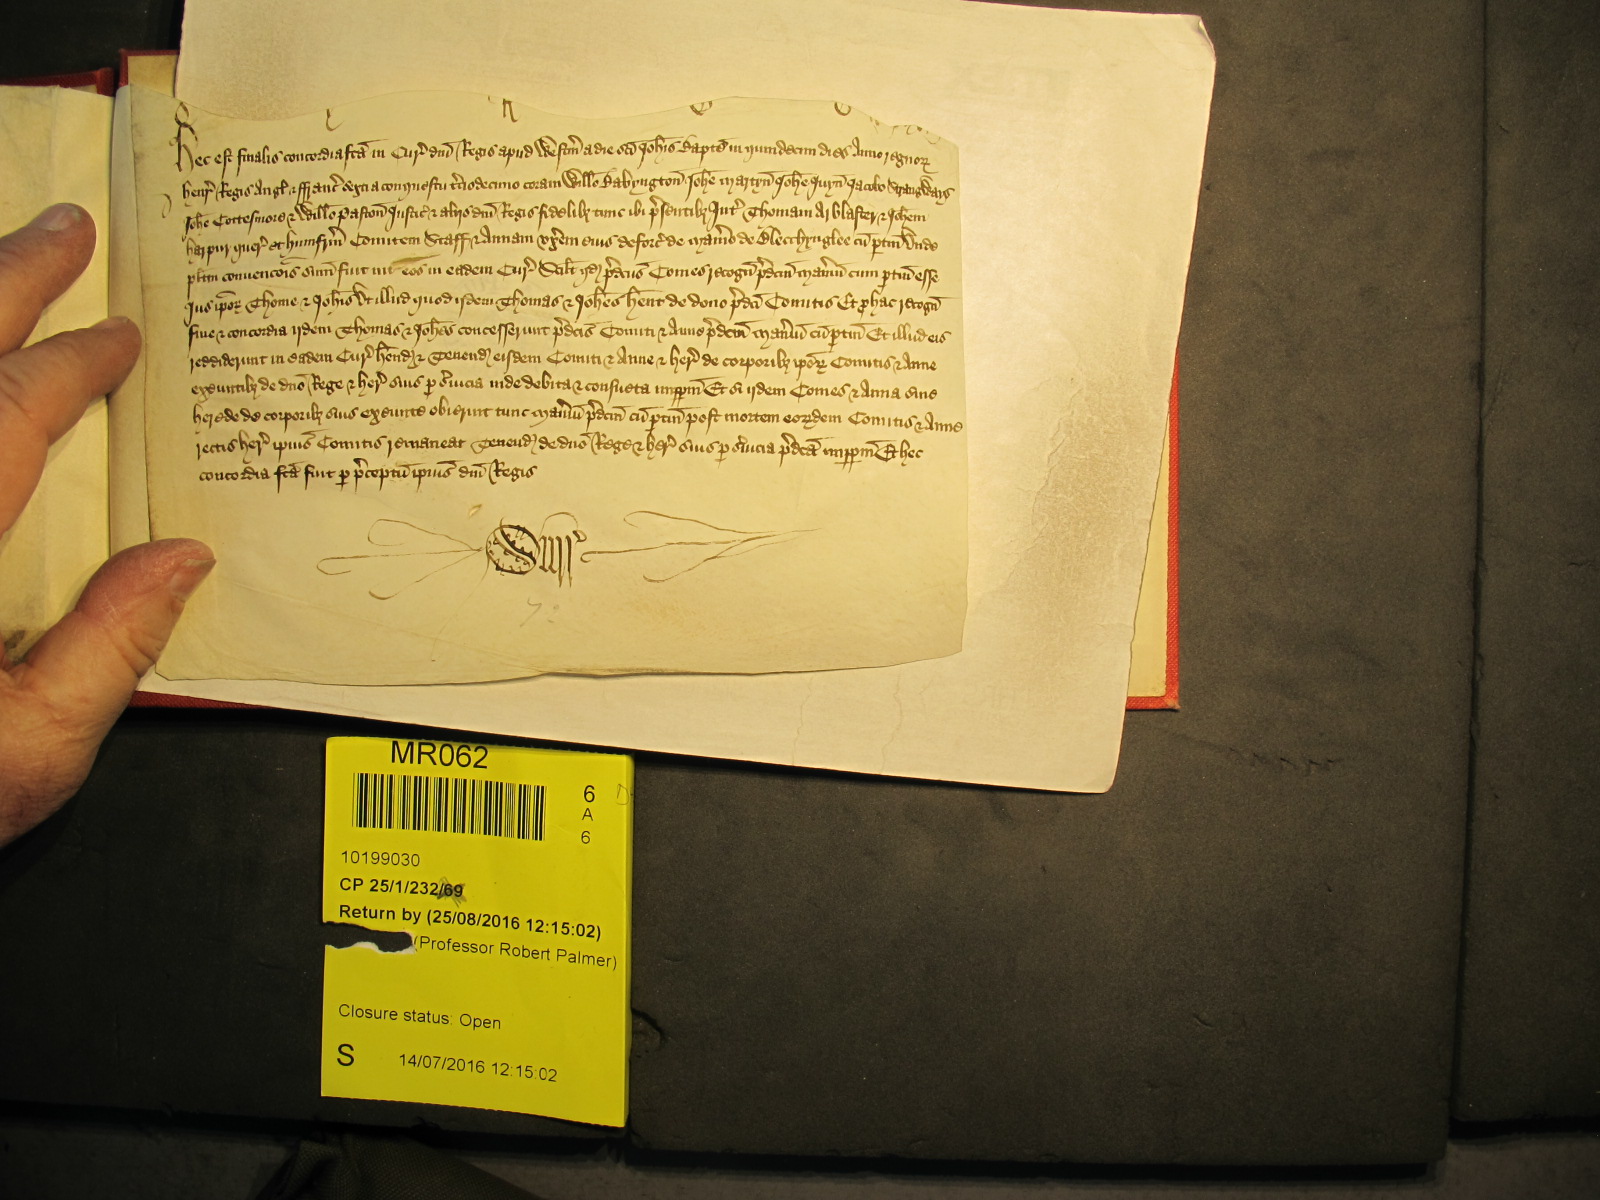 Hec est finalis concordia fcā in Cur̄ dn̄i Regis apud Westm̄ a die sc̄i Joh̄is Bapte in quindecim dies Anno regnoꝝ
Henr̄ Regis Angl̄ & ffranc̄ sexti a conquestu t̄ciodecimo coram Will̄o Babyngton Joh̄e Martyn Joh̄e Juyn Jacobo Strangways
Joh̄e Cottesmore & Will̄o Paston Justic̄ & alijs dn̄i Regis fidelibȝ tunc ibi p̄sentibȝ Int̄ Thomam Arblaster & Joh̄em
Harpur quer̄ Et Humfrm̄ Comitem Staff̄ & Annam vx̄em eius deforc̄ de Man̄io de Blecchynglee cū p̄tin̄ Vnde
pl̄tm convenc̄ois sum̄ fuit int̄ eos in eadem Cur̄ Scil̄t qd̄ p̄dcūs Comes recogn̄ p̄dcm̄ Man̄iū cum p̄tin̄ esse
Jus ip̄oꝝ Thome & Joh̄is Vt illud quod ijdem Thomas & Joh̄es h̄ent de dono p̄dc̄i Comitis Et ꝓ hac recogn̄
fine & concordia ijdem Thomas & Joh̄es concesserunt p̄dc̄is Comiti & Anne p̄dcm̄ Man̄iū cū p̄tin̄ Et illud eis
reddiderunt in eadem Cur̄ Hend̄ & Tenend̄ eisdem Comiti & Anne & her̄ de corporibȝ ip̄oꝝ Comitis & Anne
exeuntibȝ de dn̄o Rege & her̄ suis ꝑ s̄uicia inde debita & consueta imppm̄ Et si ijdem Comes & Anna sine
herede de corporibȝ suis exeunte obierint tunc Man̄iū p̄dcm̄ cū p̄tin̄ post mortem eoꝝdem Comitis & Anne
rectis her̄ ip̄ius Comitis remaneat Tenend̄ de dn̄o Rege & her̄ suis ꝑ s̄uicia p̄dcā imppm̄ Et hec
concordia fcā fuit ꝑ p̄ceptū ip̄ius dn̄i Regis
Surr̄
MR062
6
A
6
10199030
CP 25/1/232/69
Return by (25/08/2016 12:15:02)
(Professor Robert Palmer)
Closure status: Open
S 14/07/2016 12:15:02